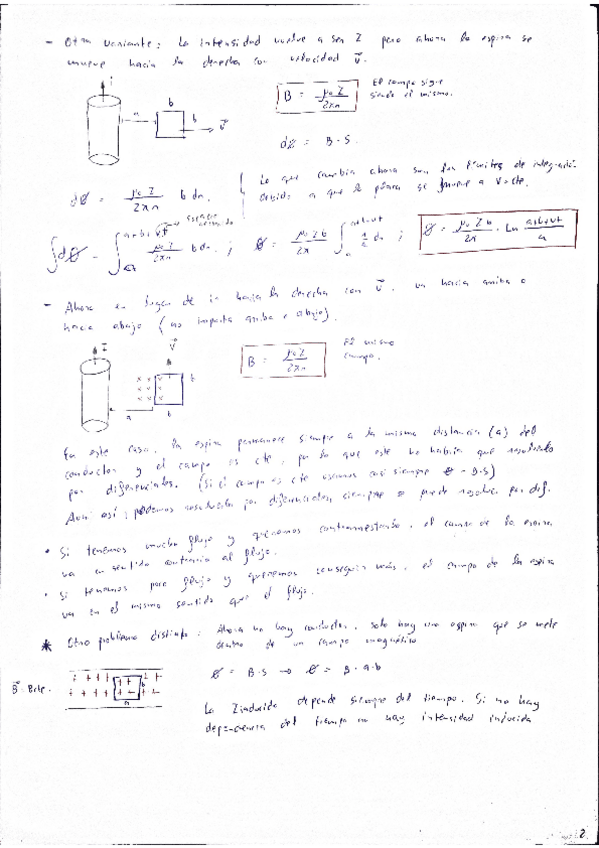 - Otra variante: La intensidad vuelve a ser I pero ahora la espira se
mueve hacia la derecha con velocidad v⃗.
B = μ₀ I / 2πr
El campo sigue
siendo el mismo.
a b b v⃗
dØ = B · S.
dØ = μ₀ I / 2πr b dr.
Lo que cambia ahora son los límites de integración
debido a que la espira se mueve a v=cte.
espacio
∫dØ = ∫ₐ^(a+b+v.t) μ₀ I / 2πr b dr. ; Ø = μ₀ I b / 2π ∫ₐ^(a+b+vt) dr ; Ø = μ₀ I b / 2π · Ln (a+b+vt) / a
- Ahora en lugar de ir hacia la derecha con v⃗, va hacia arriba o
hacia abajo (no importa arriba o abajo).
I v⃗
B = μ₀ I / 2πr
El mismo
campo.
x x x
b
a b
En este caso, la espira permanece siempre a la misma distancia (a) del
conductor y el campo es cte, por lo que este no habría que resolverlo
por diferenciales. (Si el campo es cte usamos casi siempre Ø = B·S)
Aun así, podemos resolverlo por diferenciales, siempre se puede resolver por dif.
• Si tenemos mucho flujo y queremos contrarrestarlo, el campo de la espira
va en sentido contrario al flujo.
• Si tenemos poco flujo y queremos conseguir más, el campo de la espira
va en el mismo sentido que el flujo.
* Otro problema distinto: Ahora no hay conductor, solo hay una espira que se mete
dentro de un campo magnético
B⃗ = cte.
+ + + + + +
b
a
Ø = B·S → Ø = B·a·b
La I inducida depende siempre del tiempo. Si no hay
dependencia del tiempo no hay intensidad inducida
2